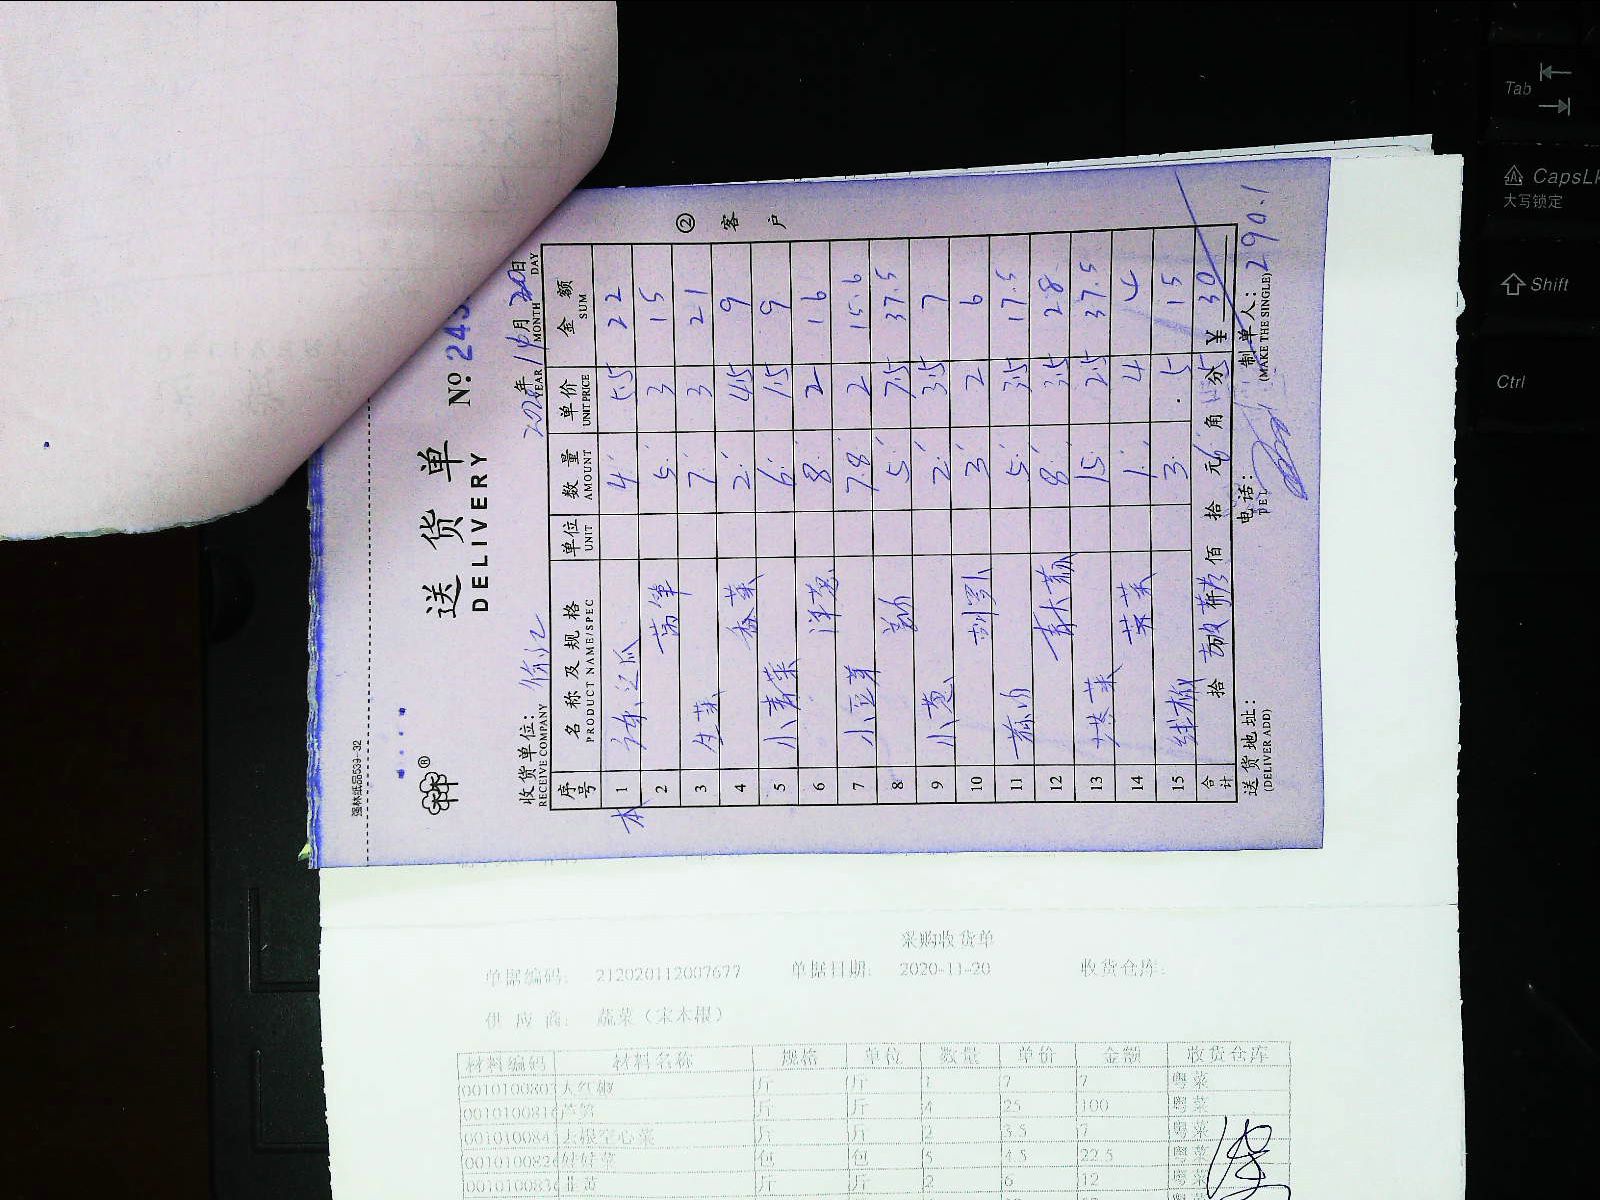 强林纸品539-32
送货单
DELIVERY
№ 243
收货单位：
RECEIVE COMPANY
2020年11月20日
YEAR MONTH DAY
序号 名称及规格 单位 数量 单价 金额
PRODUCT NAME/SPEC UNIT AMOUNT UNIT PRICE SUM
1 4 5.5 22
2 莴笋 5 3 15
3 生菜 7 3 21
4 香菜 2 4.5 9
5 小青菜 6 1.5 9
6 洋葱 8 2 16
7 小豆芽 7.8 2 15.6
8 5 7.5 37.5
9 小葱 2 3.5 7
10 3 2 6
11 5 3.5 17.5
12 8 3.5 28
13 15 2.5 37.5
14 1 4 4
15 3 5 15
合计 拾 佰 拾 元 角 分 ¥
送货地址：
(DELIVER ADD)
电话：
制单人：
(MAKE THE SINGLE)
290.1
② 客户
采购收货单
单据编码： 212020112007677 单据日期： 2020-11-20 收货仓库：
供应商： 蔬菜（宋本根）
材料编码 材料名称 规格 单位 数量 单价 金额 收货仓库
0010100803 大红椒 斤 斤 1 7 7 粤菜
0010100816 芦笋 斤 斤 4 25 100 粤菜
001010084 去根空心菜 斤 斤 2 3.5 7 粤菜
0010100826 包 包 5 4.5 22.5 粤菜
0010100836 韭黄 斤 斤 2 6 12 粤菜
Tab
CapsLk
大写锁定
Shift
Ctrl